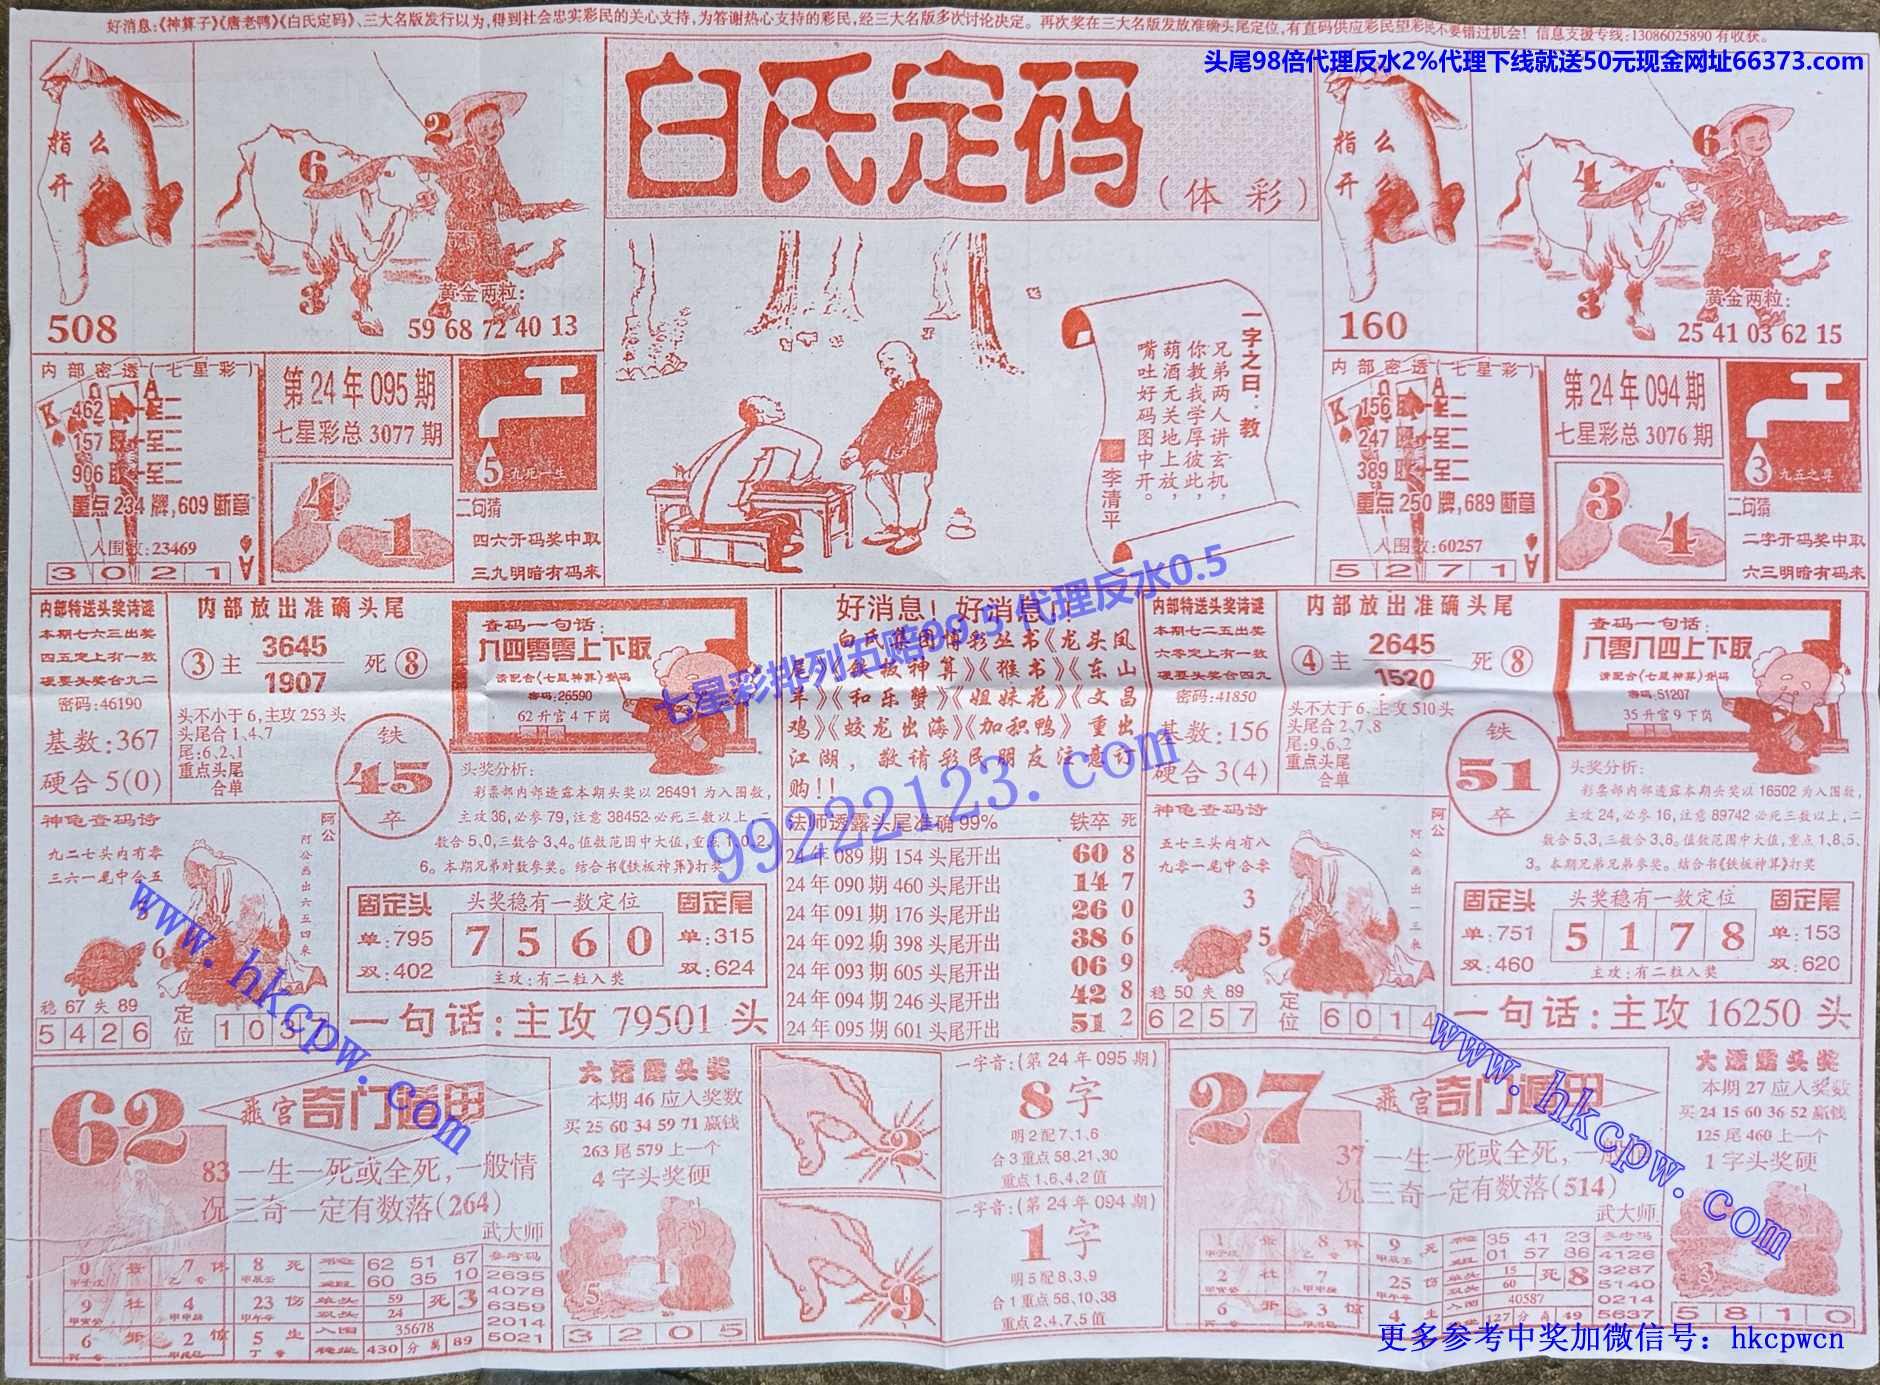 好消息:《神算子》《唐老鸭》《白氏定码》、三大名版发行以为,得到社会忠实彩民的关心支持,为答谢热心支持的彩民,经三大名版多次讨论决定。再次奖在三大名版发放准确头尾定位,有直码供应彩民望彩民不要错过机会!信息支援专线:13086025890有收获。
头尾98倍代理反水2%代理下线就送50元现金网址66373.com
指么
开么
508
2
6
3
黄金两粒:
59 68 72 40 13
白氏定码
(体彩)
一字之曰:教
兄弟两人讲玄机,
你教我学厚彼此,
葫酒无关地上放,
嘴吐好码图中开。
李清平
指么
开么
160
6
4
3
黄金两粒:
25 41 03 62 15
内部密透(七星彩)
K Q A
462 至二
157 至二
906 至二
重点234牌,609断章
入围数:23469
3 0 2 1
第24年095期
七星彩总3077期
4 1
5 九死一生
二句猜
四六开码奖中取
三九明暗有码来
内部密透(七星彩)
K Q A
156 至二
247 至二
389 至二
重点250牌,689断章
入围数:60257
5 2 7 1
第24年094期
七星彩总3076期
3 4
3 九五之尊
二句猜
二字开码奖中取
六三明暗有码来
内部特送头奖诗谜
本期七六三出奖
四五定上有一数
硬要头奖合九二
密码:46190
基数:367
硬合5(0)
内部放出准确头尾
③主 3645 死⑧
1907
头不小于6,主攻253头
头尾合1、4、7
尾:6、2、1
重点头尾
合单
铁
45
卒
查码一句话:
九四零零上下取
请配合《七星神算》登码
密码:26590
62升官4下岗
头奖分析:
彩票部内部透露本期头奖以26491为入围数,
主攻36,必参79,注意38452必死三数以上,二
数合5、0,三数合3、4。值数范围中大值,重点1、0、2、
6。本期兄弟对数参奖。结合书《铁板神算》打奖
好消息!好消息!!
白氏集团博彩丛书《龙头凤
尾》《铁板神算》《猴书》《东山
羊》《和乐蟹》《姐妹花》《文昌
鸡》《蛟龙出海》《加积鸭》重出
江湖,敬请彩民朋友注意订
购!!
七星彩排列五赔99.5代理反水0.5
99222123.com
内部特送头奖诗谜
本期七二五出奖
六零定上有一数
硬要头奖合四九
密码:41850
基数:156
硬合3(4)
内部放出准确头尾
④主 2645 死⑧
1520
头不大于6,主攻510头
头尾合2、7、8
尾:9、6、2
重点头尾
合单
铁
51
卒
查码一句话:
八零八四上下取
请配合《七星神算》登码
密码:51207
35升官9下岗
头奖分析:
彩票部内部透露本期头奖以16502为入围数,
主攻24,必参16,注意89742必死三数以上,二
数合5、3,三数合3、6。值数范围中大值,重点1、8、5、
3。本期兄弟兄弟参奖。结合书《铁板神算》打奖
神龟查码诗
九二七头内有零
三六一尾中合五
6
阿公
阿公画出六五四来
稳67失89
5 4 2 6
定位
固定头
单:795
双:402
头奖稳有一数定位
7 5 6 0
主攻:有二粒入奖
固定尾
单:315
双:624
一句话:主攻79501头
法师透露头尾准确99% 铁卒 死
24年089期154头尾开出 60 8
24年090期460头尾开出 14 7
24年091期176头尾开出 26 0
24年092期398头尾开出 38 6
24年093期605头尾开出 06 9
24年094期246头尾开出 42 8
24年095期601头尾开出 51 2
神龟查码诗
五七三头内有八
九零一尾中合零
3
5
阿公
阿公画出一三来
稳50失89
6 2 5 7
定位
6 0 1 4
固定头
单:751
双:460
头奖稳有一数定位
5 1 7 8
主攻:有二粒入奖
固定尾
单:153
双:620
一句话:主攻16250头
www.hkcpw.com
www.hkcpw.com
62
飞宫奇门遁甲
83一生一死或全死,一般情
况三奇一定有数落(264)
武大师
8 死
62 51 87
60 35 10
参考码
2635
4078
6359
2014
5021
23 伤
单头 59 死3
双头 24
入围 35678
430 分离 89
大透露头奖
本期46应入奖数
买25 60 34 59 71赢钱
263尾579上一个
4字头奖硬
5 1
3 2 0 5
2
9
一字音:(第24年095期)
8字
明2配7、1、6
合3重点58、21、30
重点1、6、4、2值
一字音:(第24年094期)
1字
明5配8、3、9
合1重点56、10、38
重点2、4、7、5值
27
飞宫奇门遁甲
37一生一死或全死,一般情
况三奇一定有数落(514)
武大师
9 死
35 41 23
01 57 86
参考码
4126
3287
5140
0214
5637
25 伤
单头 15 死8
双头 60
入围 40587
127 分离 49
大透露头奖
本期27应入奖数
买24 15 60 36 52赢钱
125尾460上一个
1字头奖硬
3
5 8 1 0
更多参考中奖加微信号:hkcpwcn